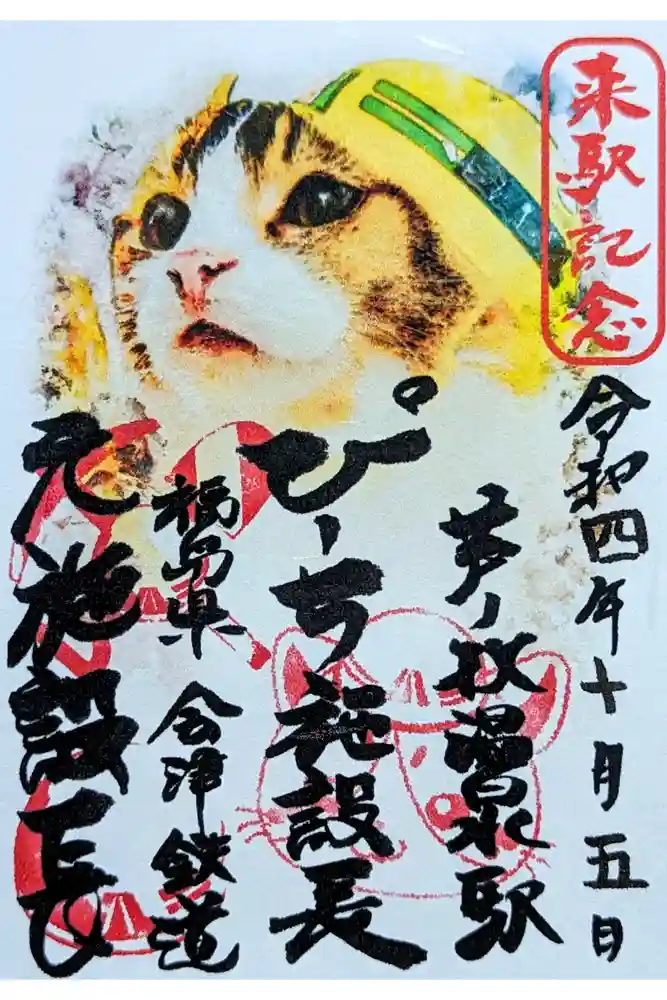 来駅記念
令和四年十月五日
芦ノ牧温泉駅
ぴーち施設長
福島県 会津鉄道
元施設長